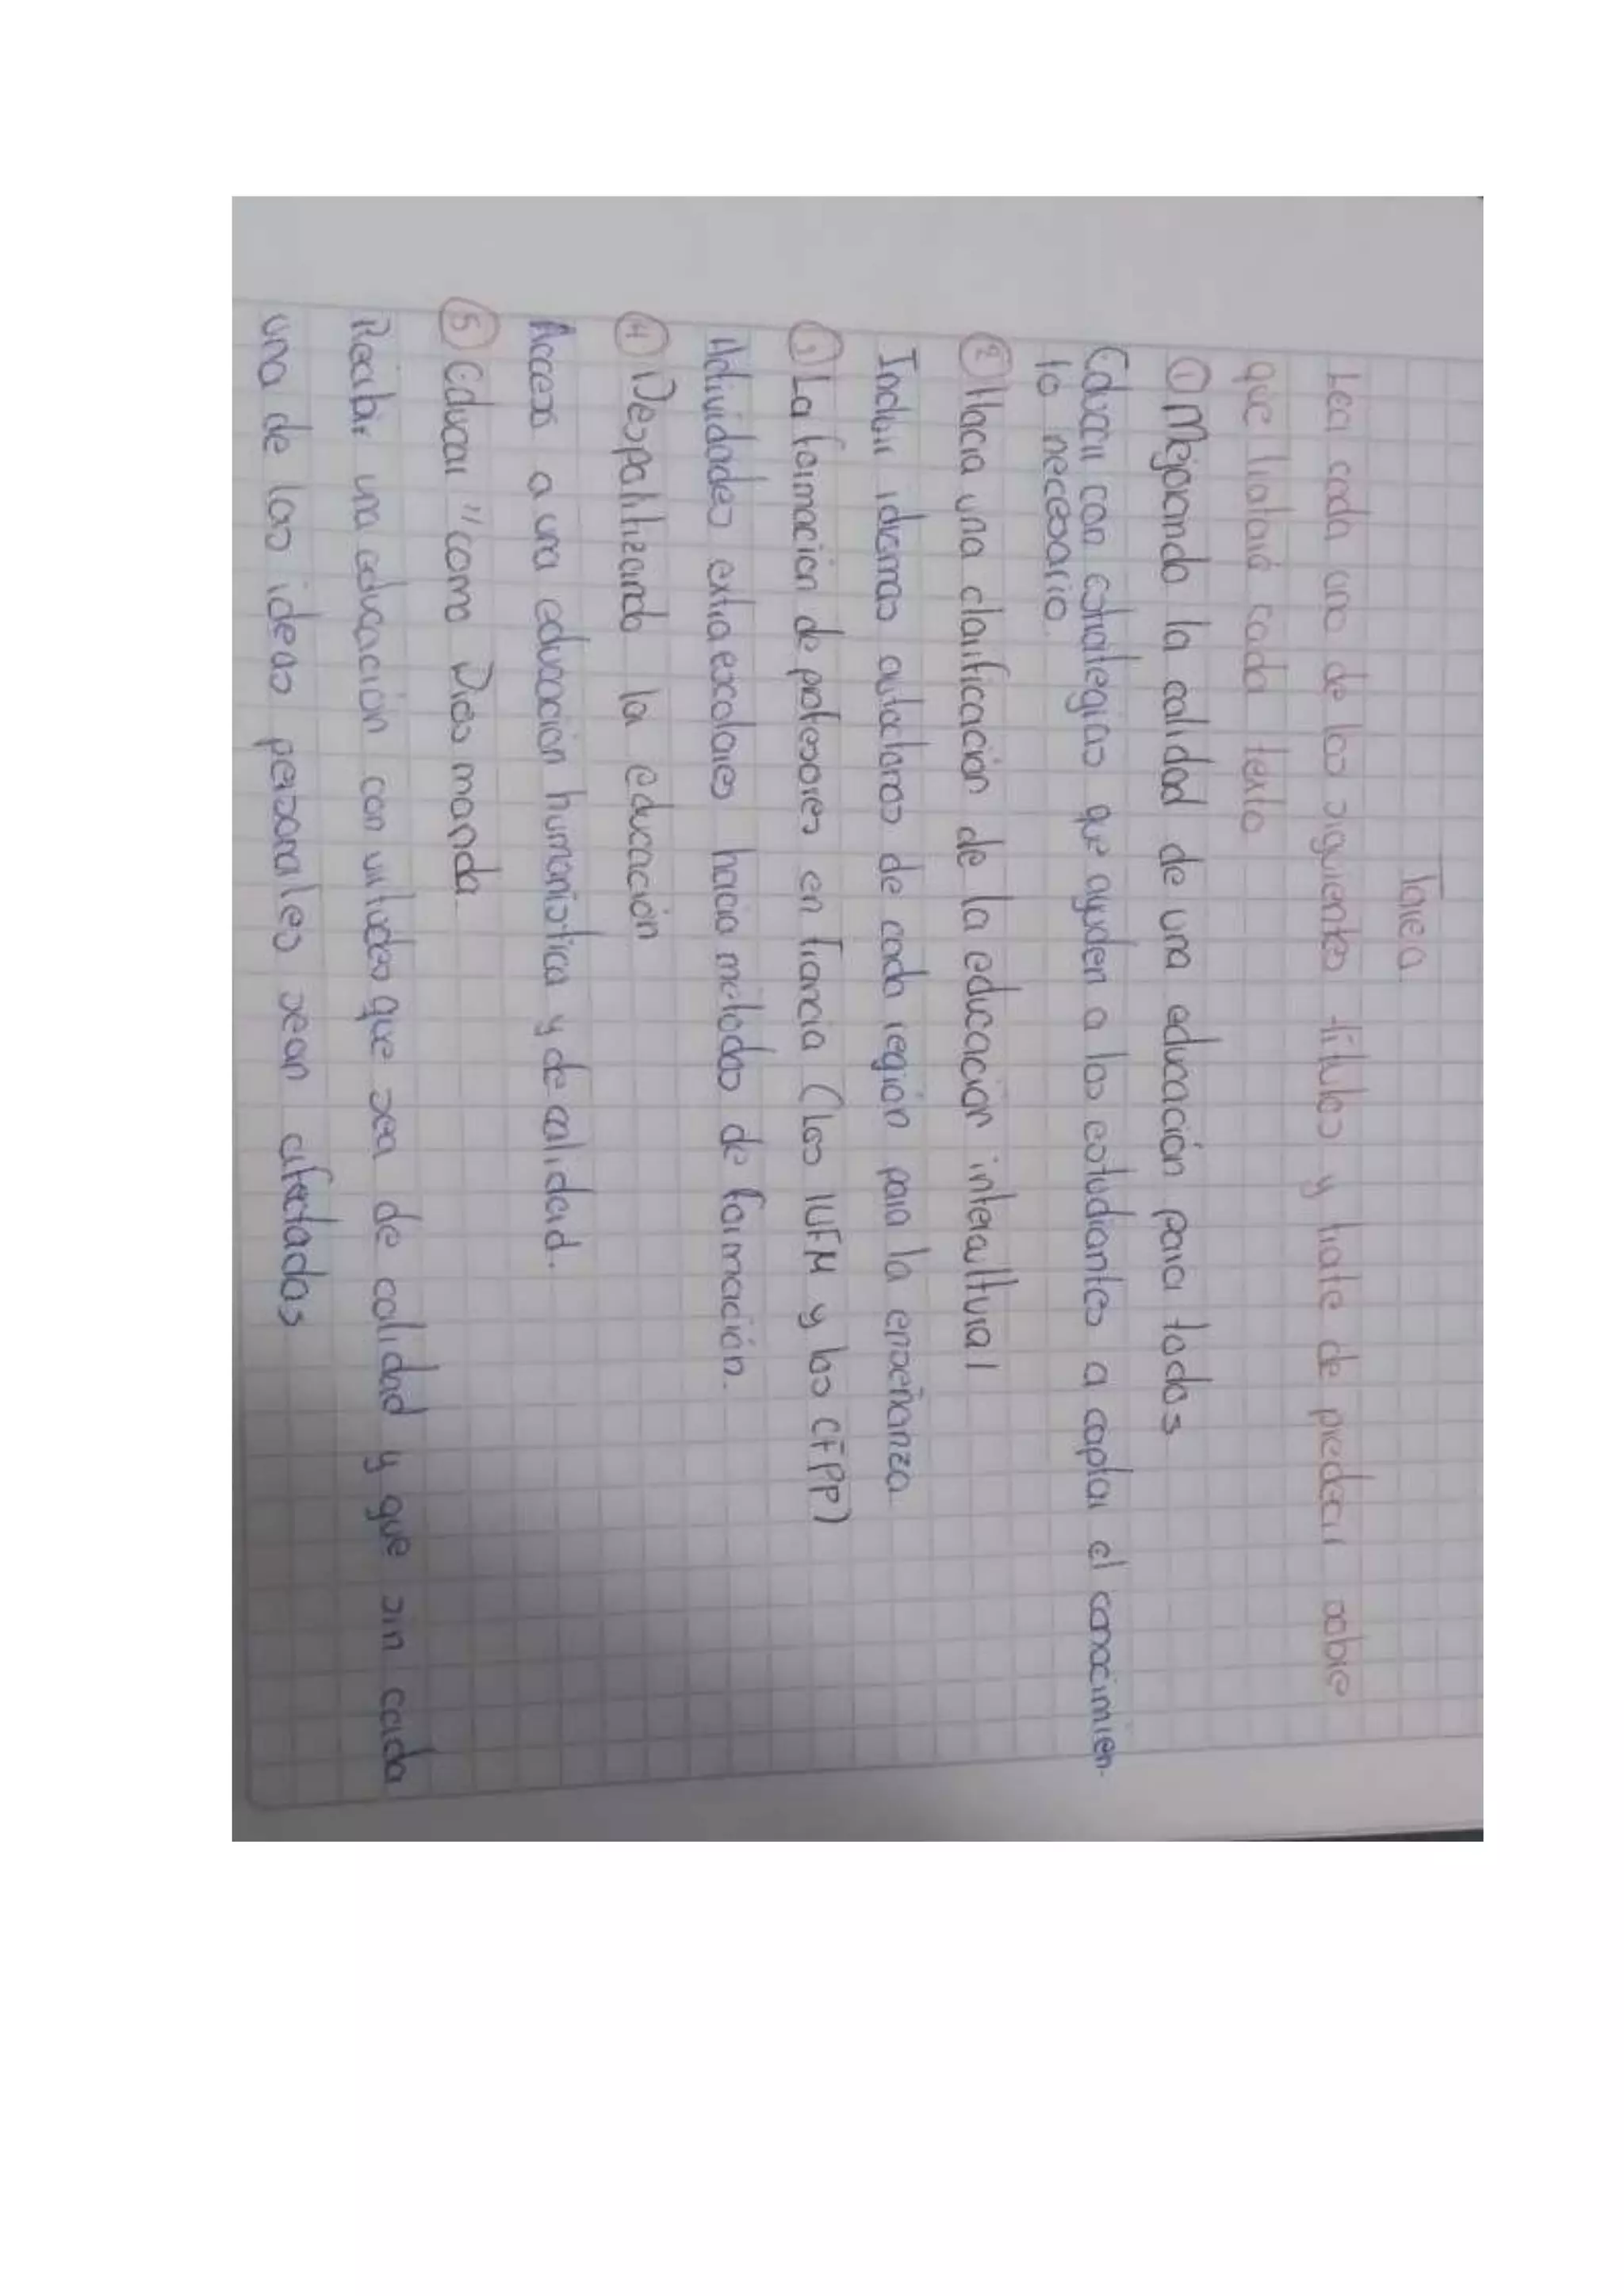 Tarea.
Lea cada uno de los siguientes títulos y trate de predecir sobre
que tratará cada texto
① Mejorando la calidad de una educación para todos
Educar con estrategias que ayuden a los estudiantes a captar el conocimien-
to necesario.
② Hacia una clarificación de la educación intercultural
Incluir idiomas autoctonos de cada región para la enseñanza.
③ La formacion de profesores en Francia (los IUFM y los CFPP)
Actividades extraescolares hacia metodos de formación.
④ Despatitizando la educación
Acceso a una educación humanistica y de calidad.
⑤ Educar "como Dios manda.
Recibir una educación con virtudes que sea de calidad y que sin cada
una de las ideas personales sean afectadas